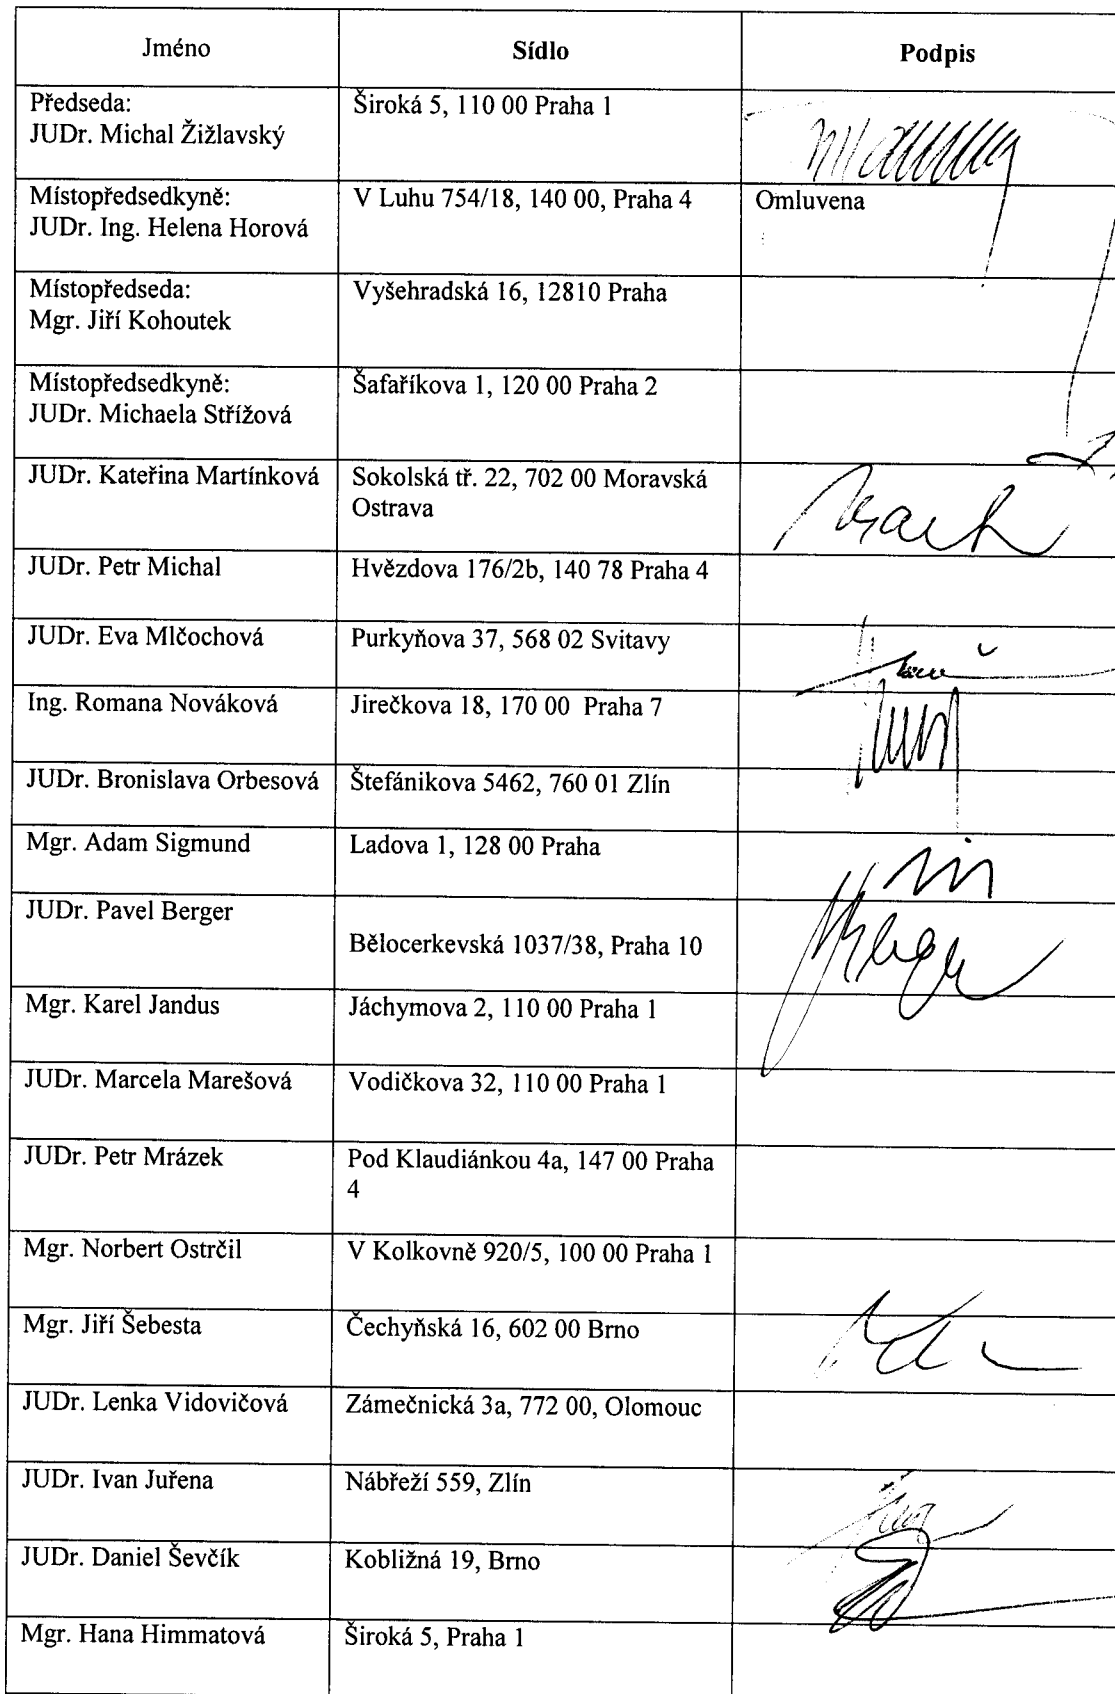 Jméno Sídlo Podpis
Předseda: Široká 5, 110 00 Praha 1
JUDr. Michal Žižlavský
Místopředsedkyně: V Luhu 754/18, 140 00, Praha 4 Omluvena
JUDr. Ing. Helena Horová
Místopředseda: Vyšehradská 16, 12810 Praha
Mgr. Jiří Kohoutek
Místopředsedkyně: Šafaříkova 1, 120 00 Praha 2
JUDr. Michaela Střížová
JUDr. Kateřina Martínková Sokolská tř. 22, 702 00 Moravská
Ostrava
JUDr. Petr Michal Hvězdova 176/2b, 140 78 Praha 4
JUDr. Eva Mlčochová Purkyňova 37, 568 02 Svitavy
Ing. Romana Nováková Jirečkova 18, 170 00 Praha 7
JUDr. Bronislava Orbesová Štefánikova 5462, 760 01 Zlín
Mgr. Adam Sigmund Ladova 1, 128 00 Praha
JUDr. Pavel Berger
Bělocerkevská 1037/38, Praha 10
Mgr. Karel Jandus Jáchymova 2, 110 00 Praha 1
JUDr. Marcela Marešová Vodičkova 32, 110 00 Praha 1
JUDr. Petr Mrázek Pod Klaudiánkou 4a, 147 00 Praha
4
Mgr. Norbert Ostrčil V Kolkovně 920/5, 100 00 Praha 1
Mgr. Jiří Šebesta Čechyňská 16, 602 00 Brno
JUDr. Lenka Vidovičová Zámečnická 3a, 772 00, Olomouc
JUDr. Ivan Juřena Nábřeží 559, Zlín
JUDr. Daniel Ševčík Kobližná 19, Brno
Mgr. Hana Himmatová Široká 5, Praha 1